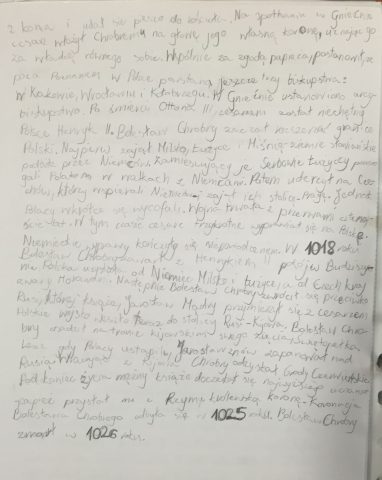 z konia i udał się pieszo do kościoła. Na spotkaniu w Gnieźnie
cesarz włożył Chrobremu na głowę jego własną koronę, uznając go
za władcę równego sobie. Wspólnie za zgodą papieża postanowił, że
poza Poznaniem w Polsce powstaną jeszcze trzy biskupstwa:
w Krakowie, Wrocławiu i Kołobrzegu. W Gnieźnie ustanowiono arcy-
biskupstwo. Po śmierci Ottona III cesarzem został niechętny
Polsce Henryk II. Bolesław Chrobry zaczął rozszerzać granice
Polski. Najpierw zajął Milsko, Łużyce i Miśnię, ziemie słowiańskie
podbite przez Niemców. Zamieszkujący je Serbowie łużyccy poma-
gali Polakom w walkach z Niemcami. Potem uderzył na Cze-
chów, który wspierali Niemców i zajął ich stolicę - Pragę. Jednak
Polacy wkrótce się wycofali. Wojna trwała z przerwami czterna-
ście lat. W tym czasie cesarz trzykrotnie wyprawiał się na Polskę.
Niemieckie wyprawy kończyły się niepowodzeniem. W 1018 roku
Bolesław Chrobry zawarł z Henrykiem II pokój w Budziszy-
nie Polska uzyskała od Niemiec Milsko i Łużyce, a od Czech kraj
zwany Morawami. Następnie Bolesław Chrobry zwrócił się przeciwko
Rusi, której książę, Jarosław Mądry przyjaźnił się z cesarzem
Polskie wojsko weszło do stolicy Rusi - Kijowa. Bolesław Chro-
bry osadził na tronie kijowskim swego zięcia - Świętopełka
Lecz gdy Polacy ustąpili, Jarosław znów zapanował nad
Rusią. Wracając z Kijowa Chrobry odzyskał Grody Czerwieńskie
Pod koniec życia mężny książę doczekał się najwyższego uznania
papież przysłał mu z Rzymu królewską koronę. Koronacja
Bolesława Chrobrego odbyła się w 1025 roku. Bolesław Chrobry
zmarł w 1026 roku.